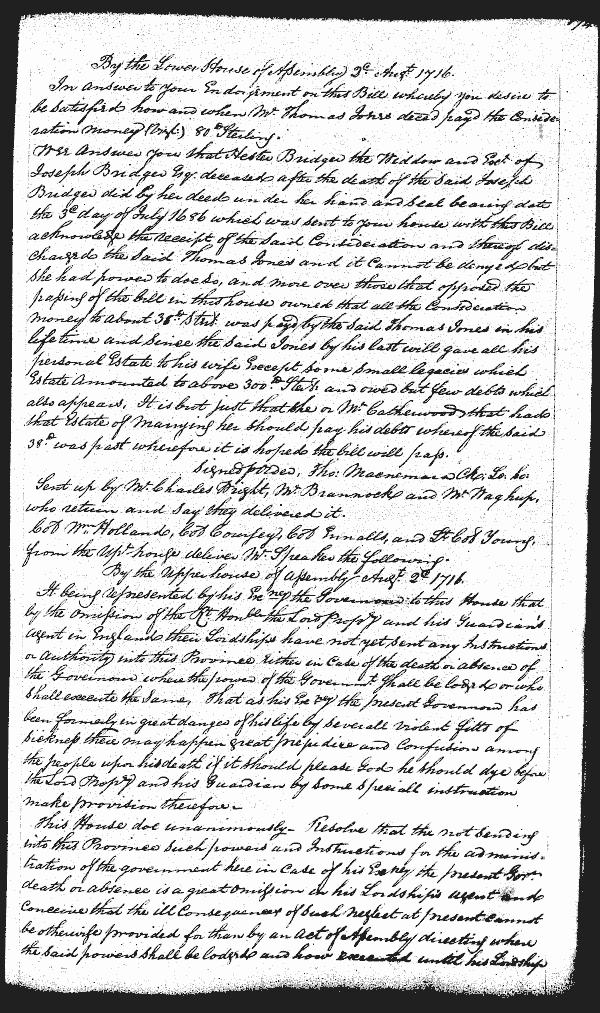 By the Lower House of Assembly 2d Augt. 1716.
In answer to your Endorsement on this Bill whereby you desire to
be Satisfied how and when Mr. Thomas Jones deced payd the Conside-
ration money (Vizt:) 80£ Sterling.
Wee Answer you that Hester Bridger the Widdow and Exx. of
Joseph Bridger Esq: deceased after the death of the Said Joseph
Bridger did by her deed under her hand and Seal bearing date
the 3d day of July 1686 which was sent to your house with this Bill
acknowledge the receipt of the Said Consideration and thereof dis-
charged the said Thomas Jones and it Cannot be denyed but
She had power to doe So, and more over those that opposed the
passing of the bill in this house owned that all the Consideration
money to about 38£ Sterl. was payd by the Said Thomas Jones in his
lifetime and Since the Said Jones by his last will gave all his
personal Estate to his wife Except some Small legacies which
Estate Amounted to above 300£ Sterl. and owed but few debts which
also appears. It is but just that she or Mr. Catherwood that had
that Estate of Marrying her Should pay his debts whereof the Said
38£ was part wherefore it is hoped the bill will pass.
Signed p Order, Tho: Macnemara Clk: Lo. ho.
Sent up by Mr. Charles Wright, Mr. Brannock and Mr. Waghop,
who return and Say they delivered it.
Col Wm Holland, Col Coursey, Col Ennalls, and Lt Col Young,
from the Upr. house deliver Mr. Speaker the following.
By the Upperhouse of Assembly Augt. 2d 1716.
It being represented by his Exncy the Governour to this House that
by the Omission of the Rt. Honble the Lord Propry and his Guardian's
agent in England their Lordships have not yet sent any Instructions
or Authority into this Province Either in Case of the death or absence of
the Governour where the power of the Governmt Shall be lodged or who
Shall execute the Same, That as his Exncy the present Governour has
been formerly in great danger of his life by severall violent fitts of
Sickness there may happen great prejudice and Confusion among
the people upon his death if it should please God he should dye before
the Lord Propry and his Guardian by some Speciall instruction
make provision therefore.
This House doe unanimously Resolve that the not Sending
into this Province Such powers and Instructions for the adminis-
tration of the government here in Case of his Exncy the present Govrs
death or absence is a great Omission in his Lordships agent and
Conceive that the ill Consequences of Such neglect at present cannot
be otherwise provided for than by an Act of Assembly directing where
the said powers Shall be lodged and how executed until his Lordship